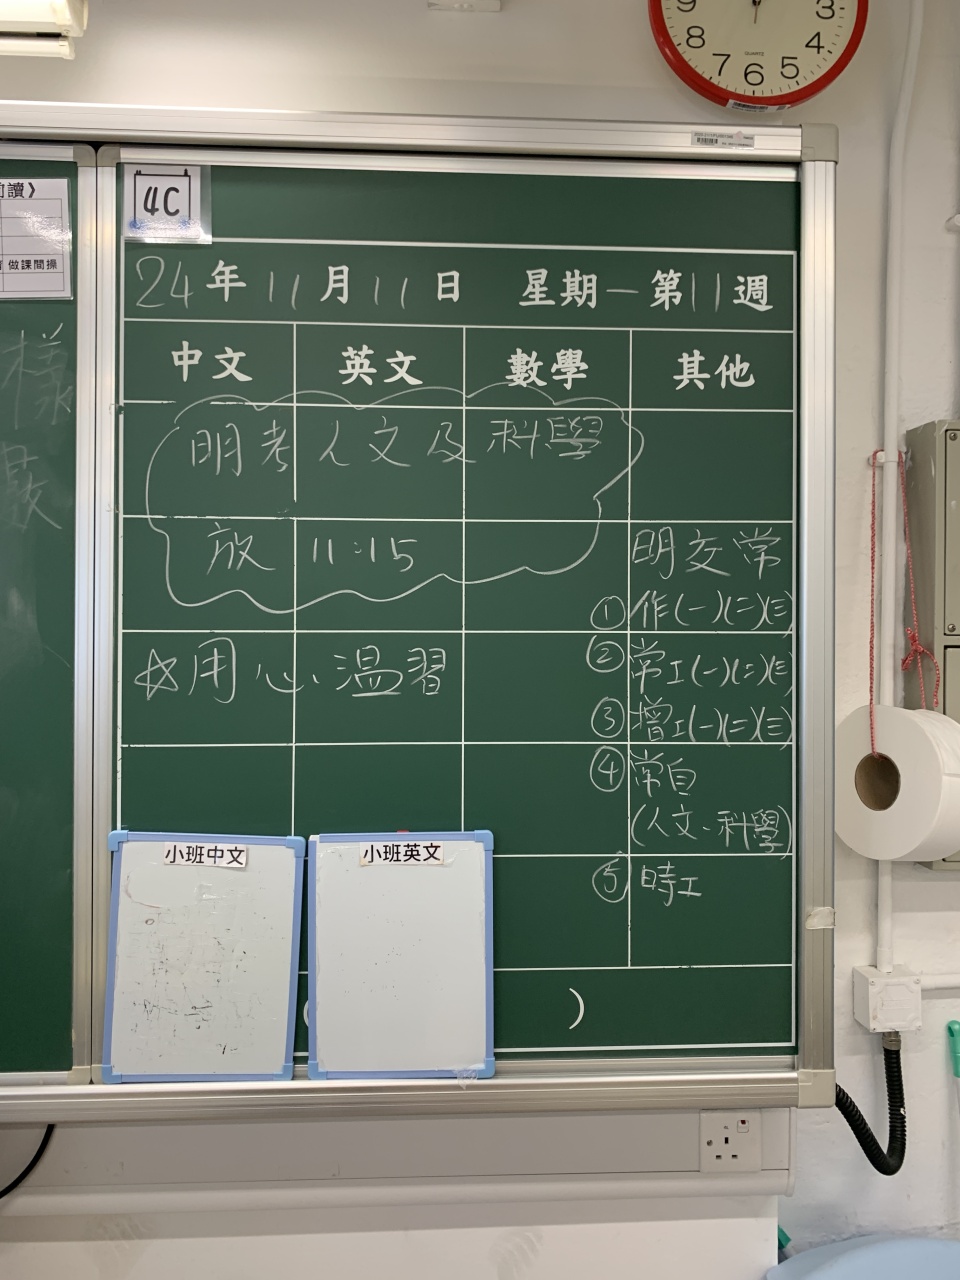 9
3
8
4
QUARTZ
7 6 5
閱讀》
做課間操
樣
4C
24年11月11日 星期一第11週
中文 英文 數學 其他
明考人文及科學
放 11:15
明交常
①作(一)(二)(三)
☆用心溫習
②常工(一)(二)(三)
③增工(一)(二)(三)
④常自
(人文、科學)
⑤時工
小班中文
小班英文
( )